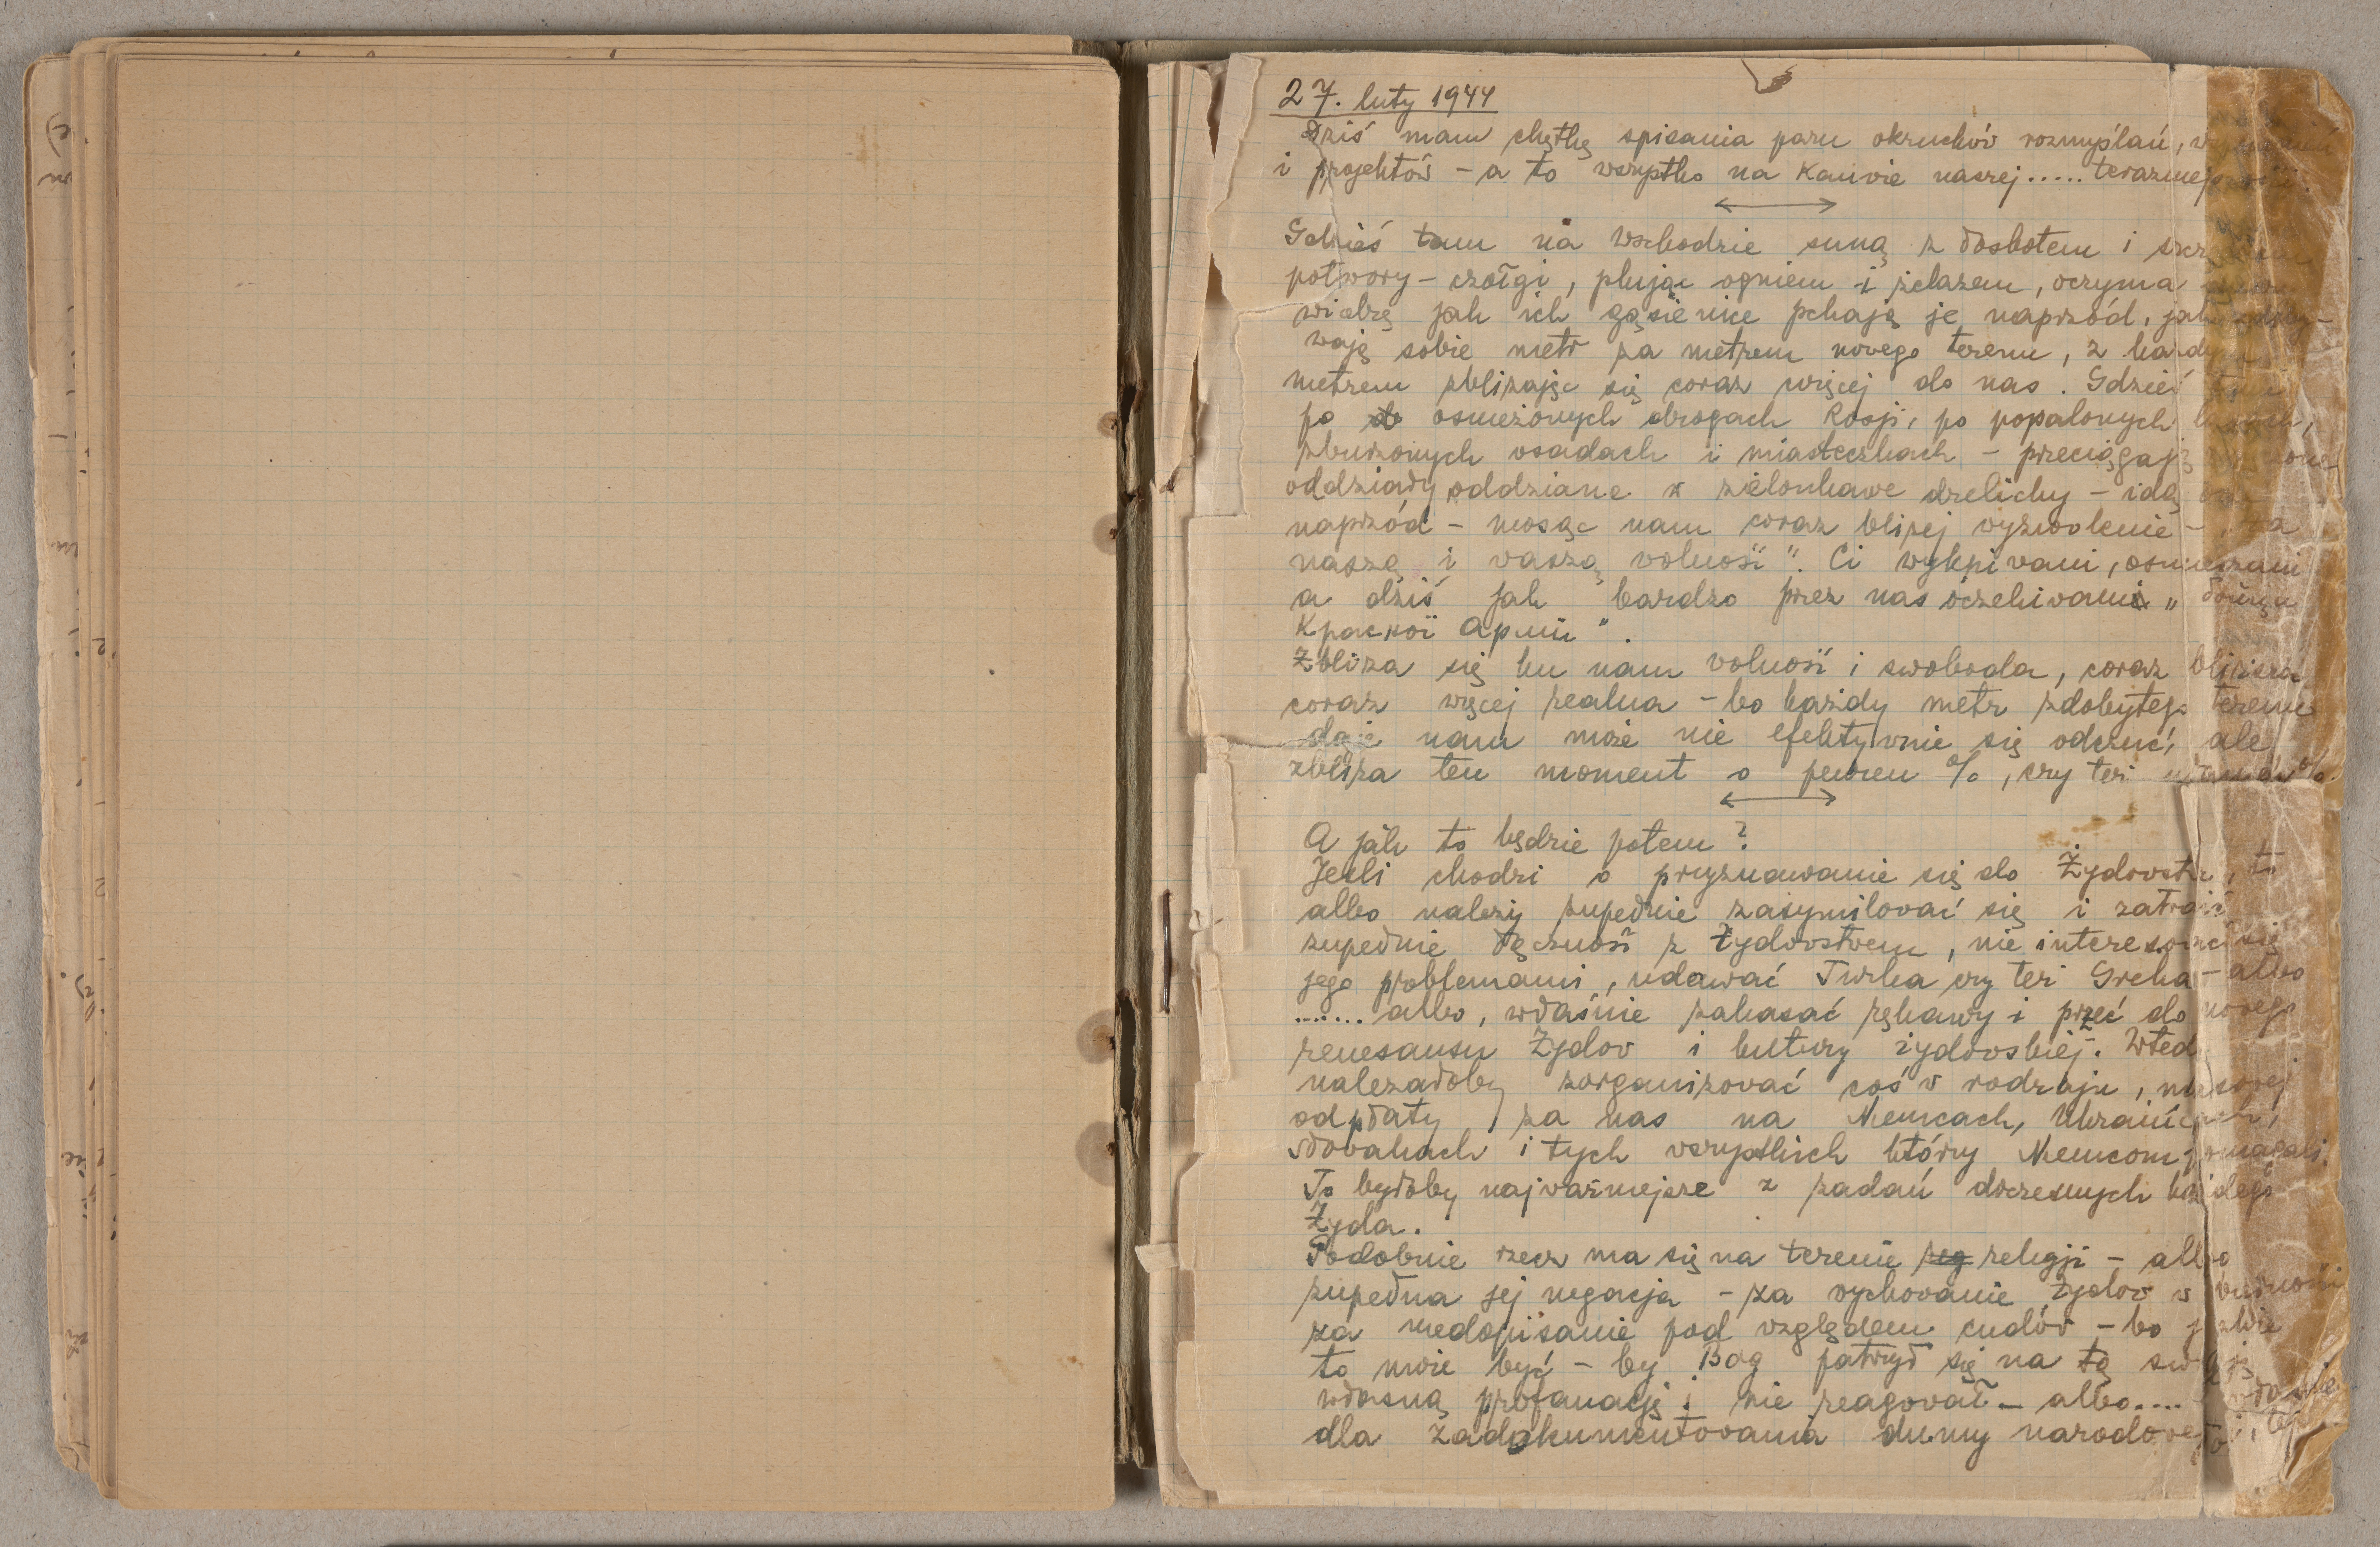 27. luty 1944
dziś mam chętkę spisania paru okruchów rozmyślań,
i projektów – a to wszystko na Kanwie naszej.....
Gdzieś tam na wschodzie suną z łoskotem i
potwory – czołgi, plując ogniem i żelazem, oczyma
widzę jak ich gąsienice pchają je naprzód, jak zdoby-
wają sobie metr za metrem nowego terenu, z każdym
metrem zbliżając się coraz więcej do nas. Gdzieś tam
po osnieżonych drogach Rosji, po popalonych
zburzonych osadach i miasteczkach – przeciągają
oddziały oddziane w zielonkawe drelichy – idą
naprzód – niosąc nam coraz bliżej wyzwolenie – „za
naszą i waszą wolność". Ci wykpiwani, osmieszani
a dziś jak bardzo przez nas oczekiwani „
Красной Армии".
Zbliża się ku nam wolność i swoboda, coraz bliższa
coraz więcej realna – bo każdy metr zdobytego terenu
daje nam może nie efektywnie się odczuć, ale
zbliża ten moment o pewien %, czy też ułamek %.
A jak to będzie potem?
Jeśli chodzi o przyznawanie się do Żydowstwa, to
albo należy zupełnie zasymilować się i zatracić
zupełnie łączność z żydowstwem, nie interesować się
jego problemami, udawać Turka czy też Greka – albo
....... albo, właśnie zakasać rękawy i przeć do nowego
renesansu Żydow i kultury żydowskiej. Wtedy
należałoby zorganizować coś w rodzaju, masowej
odpłaty za nas na Niemcach, Ukraińcach,
słowakach i tych wszystkich którzy Niemcom pomagali.
To byłoby najważniejsze z zadań doczesnych każdego
Żyda.
Podobnie rzecz ma się na terenie religji – albo
zupełna jej negacja – za wychowanie Żydow w
za niedopisanie pod względem cudów – bo jakże
to może być – by Bog patrzył się na tę swoją
własną profanację i nie reagował – albo.... właśnie
dla zadokumentowania dumy narodowej, tej